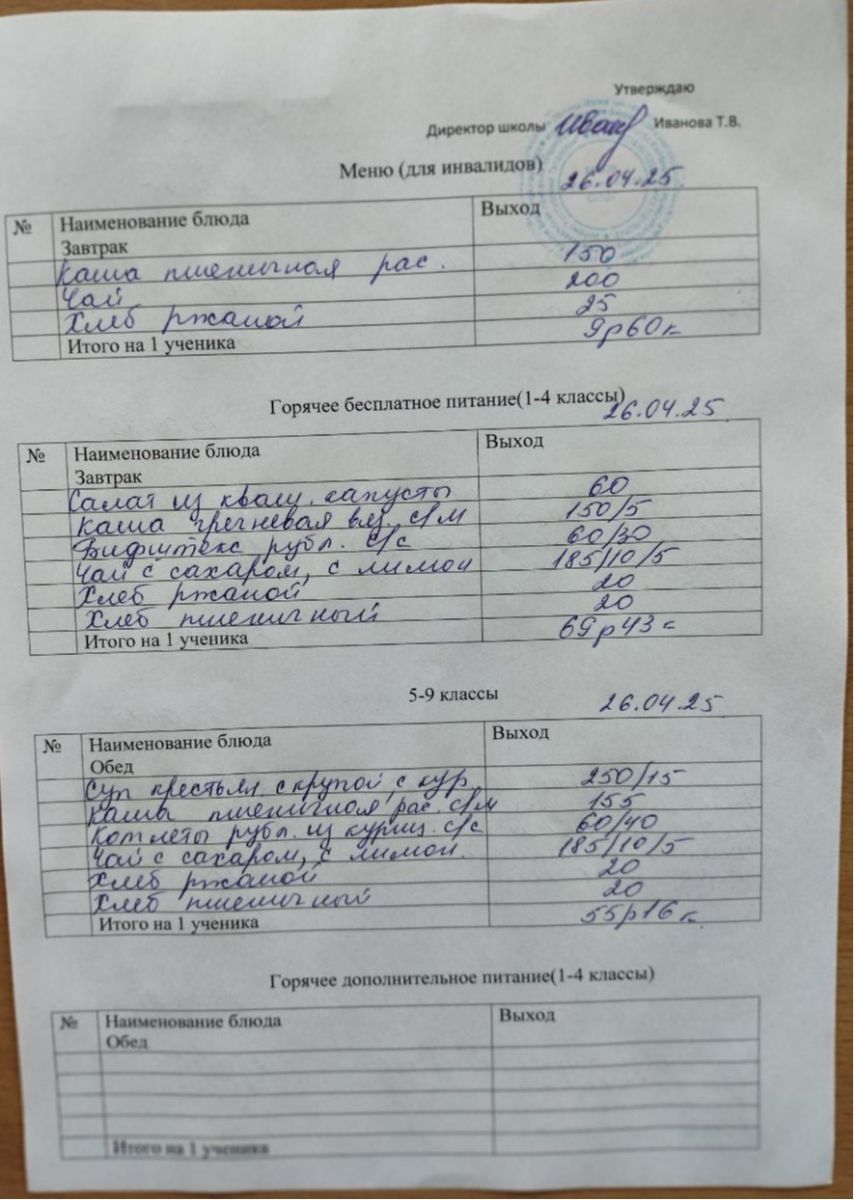 Утверждаю
Директор школы Иванова Т.В.
Меню (для инвалидов) 26.04.25
№ Наименование блюда Выход
Завтрак
Каша пшеничная рас. 150
Чай 200
Хлеб ржаной 25
Итого на 1 ученика 9р60к
Горячее бесплатное питание(1-4 классы) 26.04.25
№ Наименование блюда Выход
Завтрак
Салат из кваш. капусты 60
Каша гречневая вяз. с/м 150/5
Бифштекс рубл. с/с 60/30
Чай с сахаром, с лимон 185/10/5
Хлеб ржаной 20
Хлеб пшеничный 20
Итого на 1 ученика 69р43к
5-9 классы 26.04.25
№ Наименование блюда Выход
Обед
Суп крестьян. с крупой, с кур. 250/15
Каша пшеничная рас. с/м 155
Котлеты рубл. из куриц. с/с 60/40
Чай с сахаром, с лимон. 185/10/5
Хлеб ржаной 20
Хлеб пшеничный 20
Итого на 1 ученика 55р16к
Горячее дополнительное питание(1-4 классы)
№ Наименование блюда Выход
Обед
Итого на 1 ученика